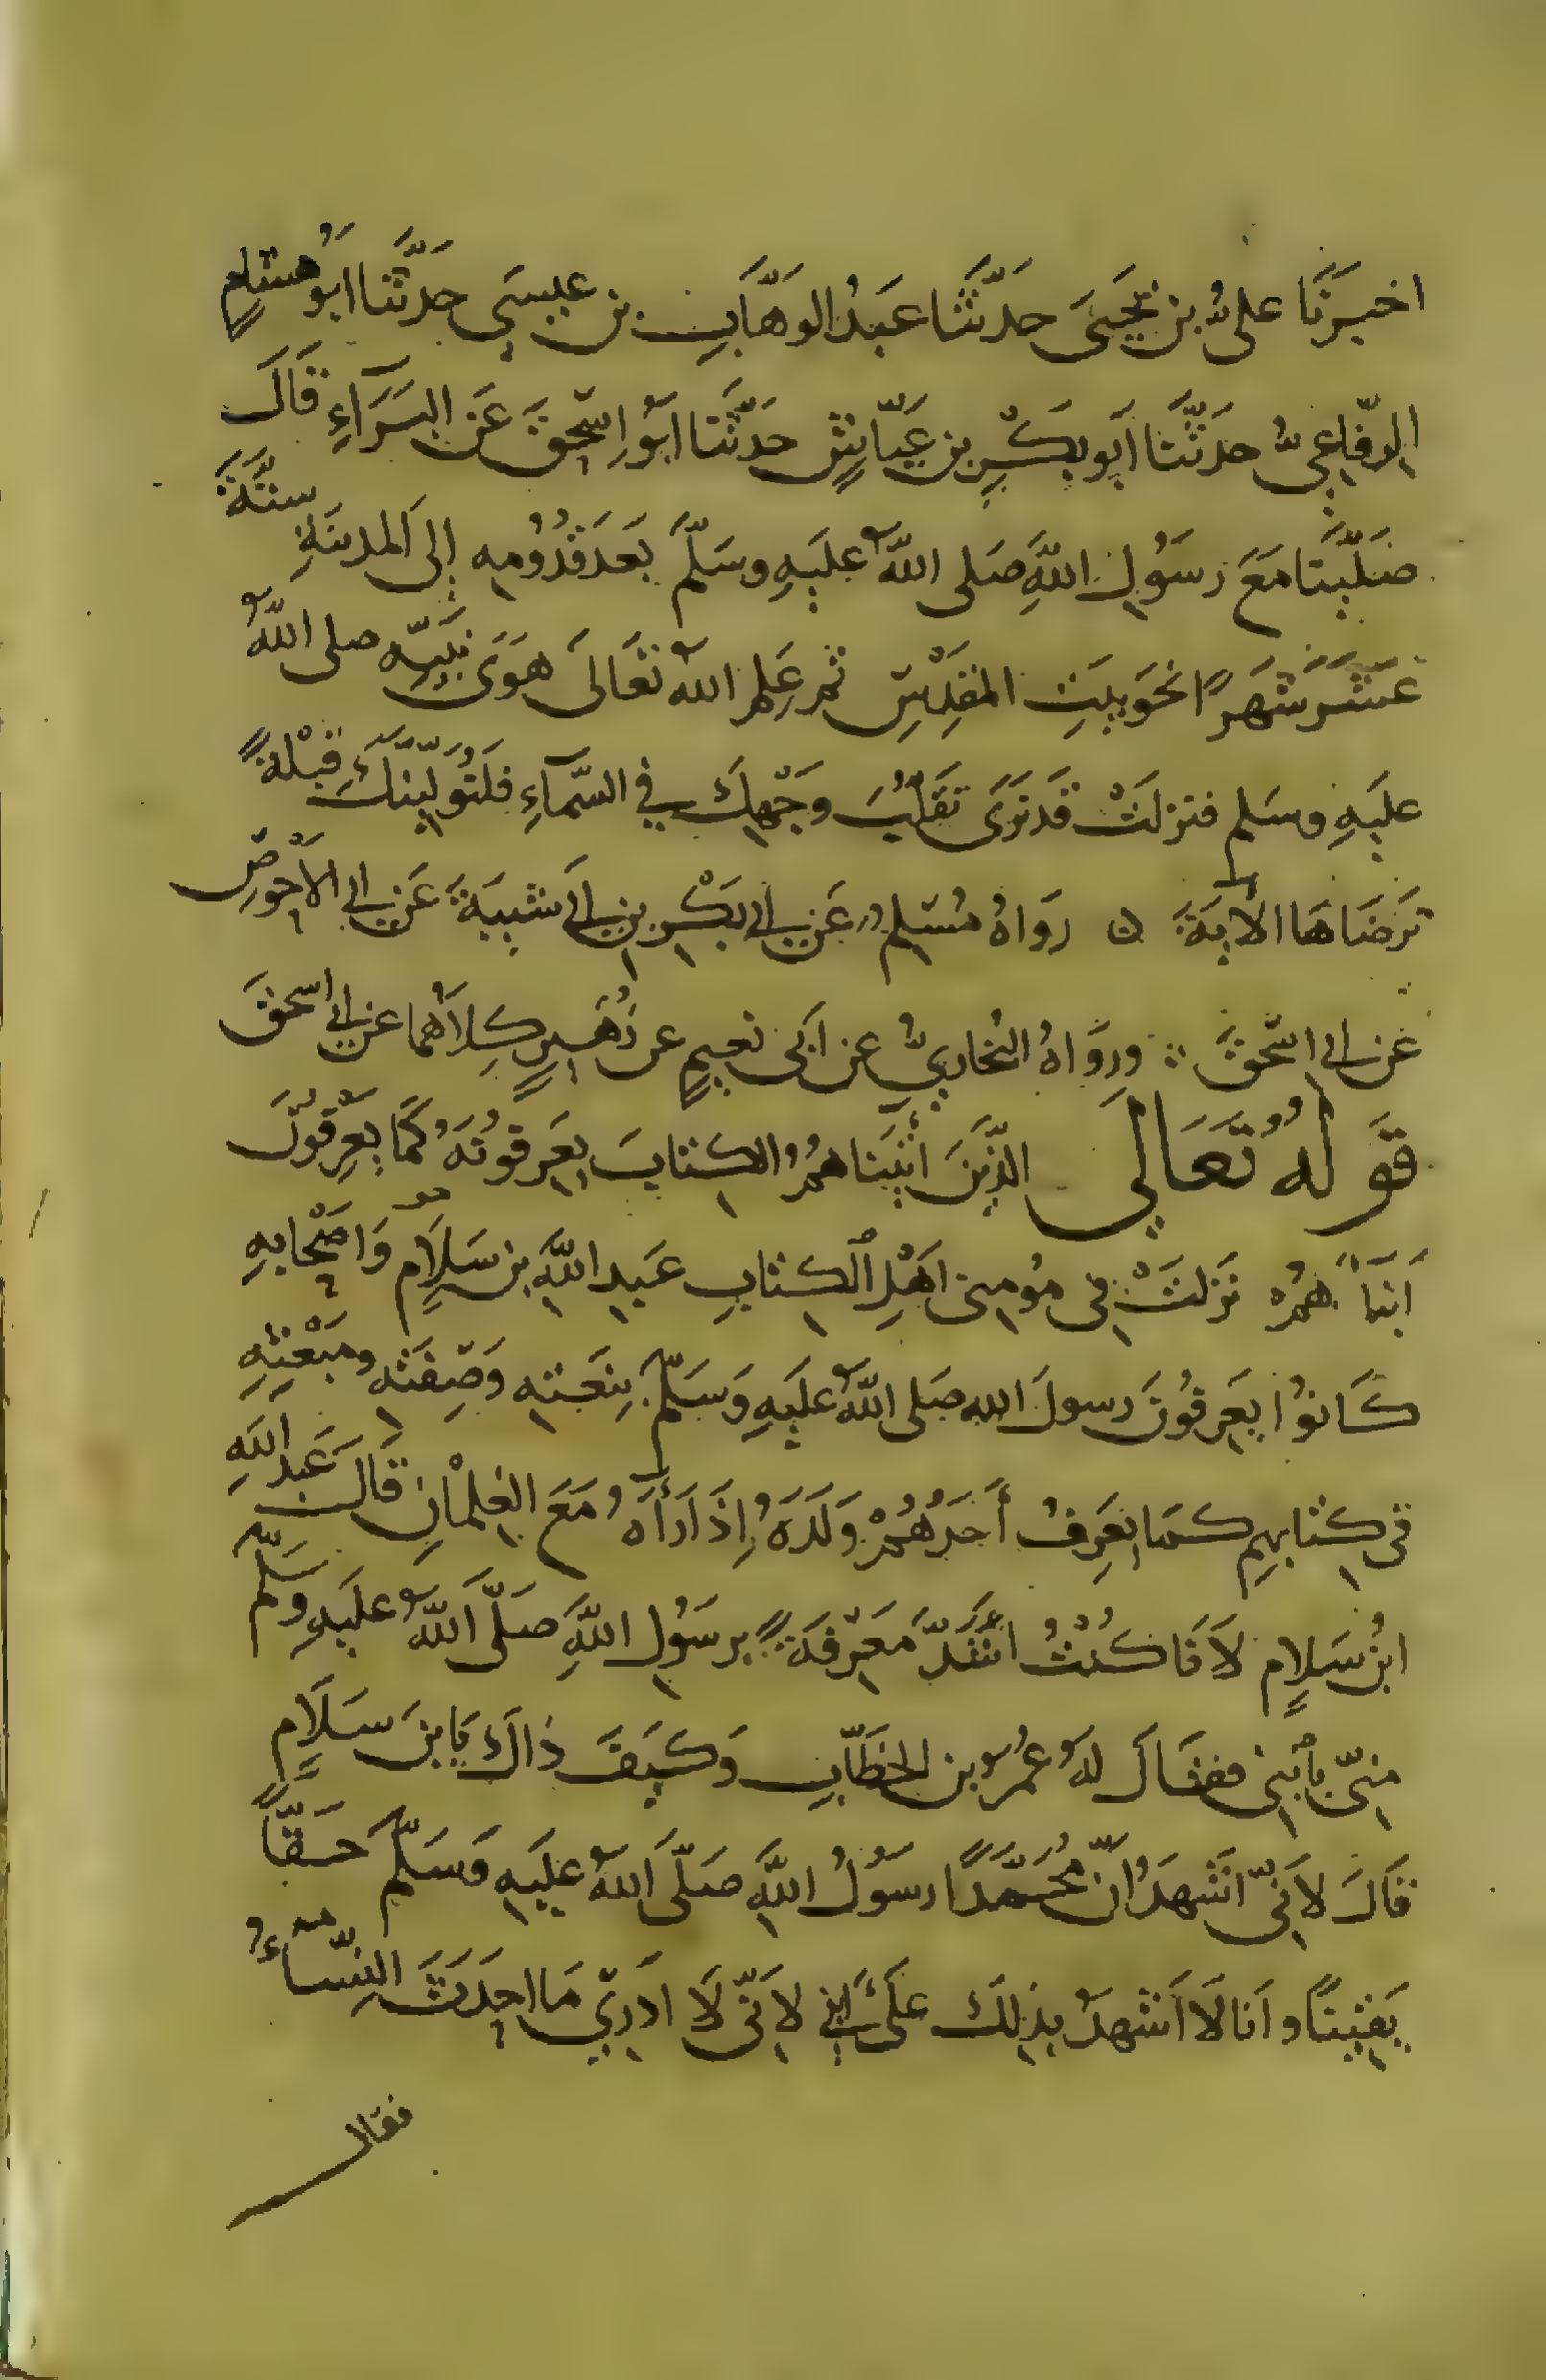 اخبرَنَا علىُّ بن يَحيَىَ حدثنا عَبدُ الوَهَّابِ بن عِيسَى حدثنا ابُو هشامٍ
الرِّفاعِىُّ حدثنا ابو بَكرِ بن عَيّاشٍ حدثنا ابو اِسحقَ عَن البَرَآءِ قَالَ
صَلَّينَا مَعَ رسُولِ اللهِ صَلى اللهُ عليَهِ وسَلَّمَ بَعدَ قدُومِهِ إلى المدينَةِ ستَّةَ
عشَرَ شَهرًا نَحوَ بيتِ المَقدِسِ ثم عَلِمَ اللهُ تَعَالىَ هَوَى نَبيِّهِ صلى اللهُ
عليَهِ وسَلم فنزلَتْ قَد نَرَى تَقَلُّبَ وَجْهِكَ فِي السَّمآءِ فَلَنُوَلِّيَنَّكَ قِبْلةً
تَرضَاهَا الأيَةَ ٥ رَوَاهُ مُسْلِمٌ عَن ابى بَكْرِ بن ابى شَيبَةَ عَن ابى الاَحْوصِ
عَن ابى اسْحقَ ∴ ورَوَاهُ البُخَارِيُّ عن ابى نعيمٍ عن زُهَيرٍ كِلاَهُما عن ابى اسحقَ
قَولُهُ تَعَالَى الَّذِينَ أتَينَاهُمُ الكتابَ يَعرِفُونَهُ كَمَا يَعْرِفُونَ
اَبنَآءَهُمْ نَزلَتْ فِى مُومِنى اَهْلِ الكتابِ عَبدِ اللهِ بن سَلاَمٍ وَاَصْحَابِهِ
كَانُوا يَعرِفُونَ رسولَ اللهِ صَلى اللهُ عليَهِ وَسَلَّمَ بِنَعتِهِ وَصِفَتِهِ ومَبْعَثِهِ
فى كِتابهِم كمَا يَعرِفُ أحَدُهُمْ وَلَدَهُ اِذَا رَأَهُ مَعَ الغِلمَانِ قَالَ عَبد اللهِ
ابنُ سَلاَمٍ لاَنَا كُنْتُ اَشَدَّ مَعْرِفَةً برسُولِ اللهِ صَلَّى اللهُ عليَهِ وَسَلَّمَ
مِنّى بِاْبنى فقَالَ لهُ عُمرُ بن الخطّابِ وَكَيفَ ذَاكَ يَا بنَ سَلاَمٍ
قَالَ لاَنِّى اَشهَدُ انّ مُحَمَّدًا رسُولُ اللهِ صَلَّى اللهُ عليَهِ وَسَلَّمَ حَقًّا
يَقِينًا وَاَنا لاَ اَشهَدُ بِذلِكَ عَلَى ابنِى لاَنِّى لاَ ادرِي مَا احدَثَ النِّسَآءُ
فقال